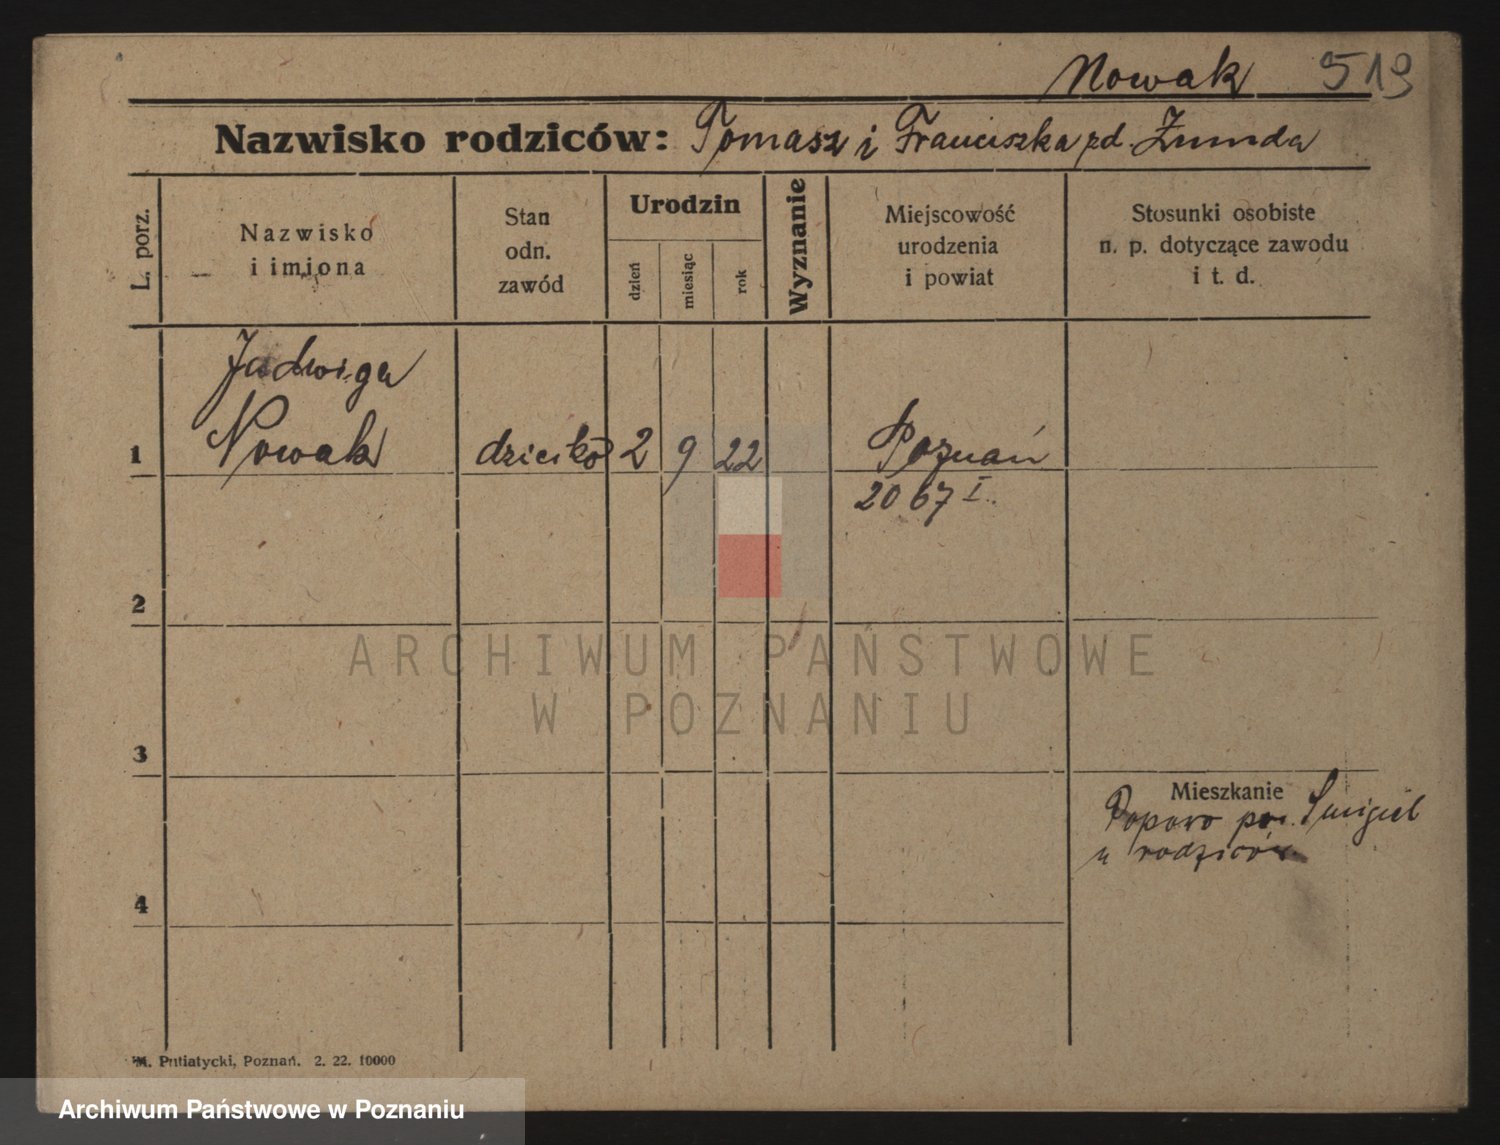 Nowak 519
Nazwisko rodziców: Tomasz i Franciszka zd. Żmuda
L. porz.
Nazwisko
i imiona
Stan
odn.
zawód
Urodzin
dzień
miesiąc
rok
Wyznanie
Miejscowość
urodzenia
i powiat
Stosunki osobiste
n. p. dotyczące zawodu
i t. d.
Jadwiga
1 Nowak dziecko 2 9 22 Poznań
2067 I.
2
ARCHIWUM PAŃSTWOWE
W POZNANIU
3
Mieszkanie
Popowo pow. Śmigiel
u rodziców
4
M. Putiatycki, Poznań. 2. 22. 10000
Archiwum Państwowe w Poznaniu